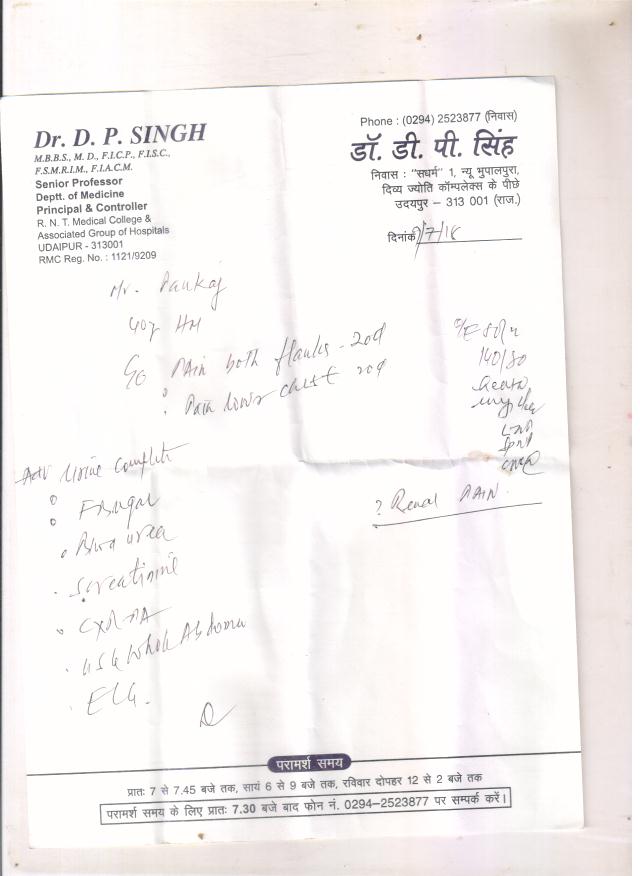 Dr. D. P. SINGH
M.B.B.S., M. D., F.I.C.P., F.I.S.C.,
F.S.M.R.I.M., F.I.A.C.M.
Senior Professor
Deptt. of Medicine
Principal & Controller
R. N. T. Medical College &
Associated Group of Hospitals
UDAIPUR - 313001
RMC Reg. No. : 1121/9209
Phone : (0294) 2523877 (निवास)
डॉ. डी. पी. सिंह
निवास : "सधर्म" 1, न्यू भुपालपुरा,
दिव्य ज्योति कॉम्पलेक्स के पीछे
उदयपुर – 313 001 (राज.)
दिनांक /7/18
Mr. Pankaj
40y HM
C/o PAIN both flanks - 20d
Pain lower chest 20d
O/E
140/80
Heart
Lungs clear
? Renal PAIN.
Adv Urine complete
F Sugar
Blood urea
S creatinine
CXR-PA
USG Whole Abdomen
ECG.
परामर्श समय
प्रातः 7 से 7.45 बजे तक, सायं 6 से 9 बजे तक, रविवार दोपहर 12 से 2 बजे तक
परामर्श समय के लिए प्रातः 7.30 बजे बाद फोन नं. 0294–2523877 पर सम्पर्क करें।